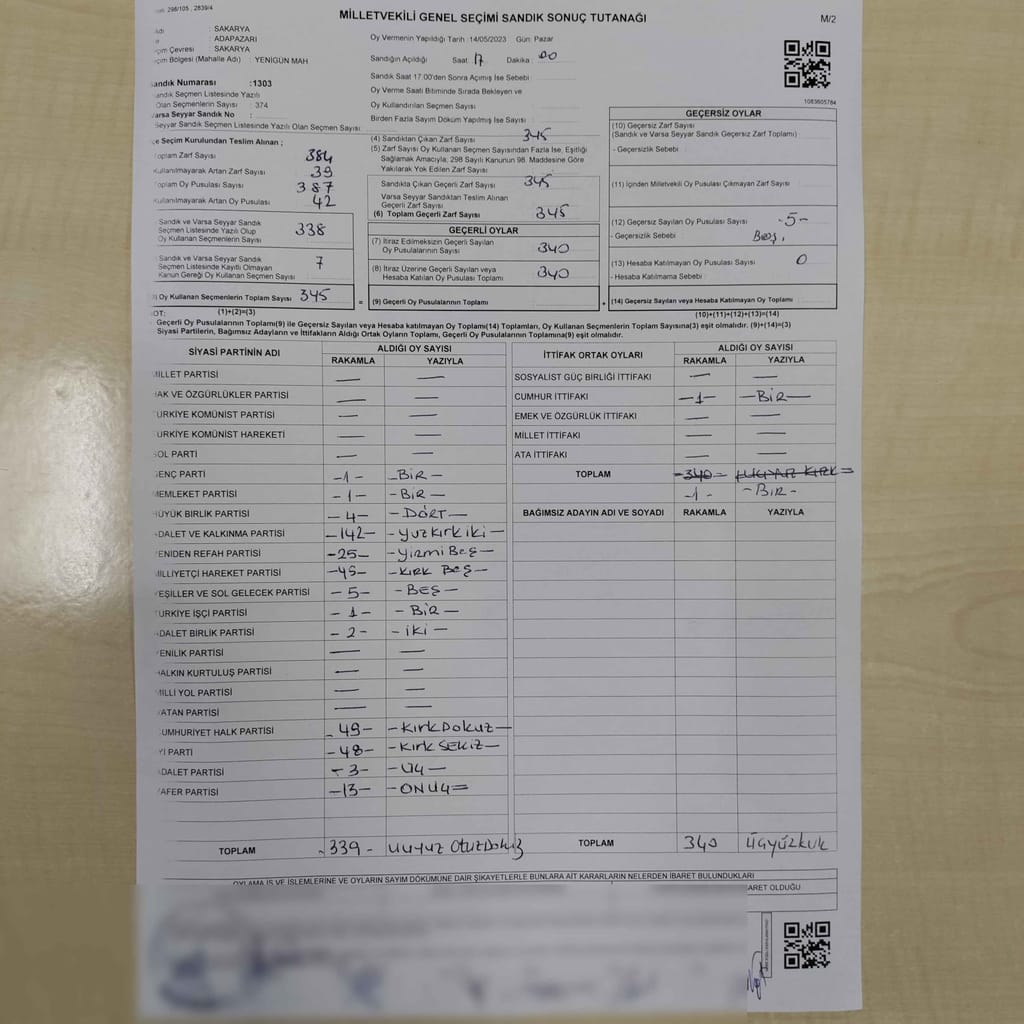 298/105 , 2839/4
MİLLETVEKİLİ GENEL SEÇİMİ SANDIK SONUÇ TUTANAĞI
M/2
: SAKARYA
: ADAPAZARI
Çevresi : SAKARYA
Bölgesi (Mahalle Adı) : YENİGÜN MAH
Oy Vermenin Yapıldığı Tarih :14/05/2023 Gün: Pazar
Sandığın Açıldığı Saat: 17 Dakika: 00
Sandık Saat 17.00'den Sonra Açımış İse Sebebi :
Oy Verme Saati Bitiminde Sırada Bekleyen ve
Oy Kullandırılan Seçmen Sayısı :
Birden Fazla Sayım Döküm Yapılmış İse Sayısı :
1083605784
andık Numarası :1303
andık Seçmen Listesinde Yazılı
Olan Seçmenlerin Sayısı : 374
Varsa Seyyar Sandık No :
Seyyar Sandık Seçmen Listesinde Yazılı Olan Seçmen Sayısı :
e Seçim Kurulundan Teslim Alınan ;
oplam Zarf Sayısı 384
Kullanılmayarak Artan Zarf Sayısı 39
oplam Oy Pusulası Sayısı 387
Kullanılmayarak Artan Oy Pusulası 42
Sandık ve Varsa Seyyar Sandık
Seçmen Listesinde Yazılı Olup
Oy Kullanan Seçmenlerin Sayısı 338
Sandık ve Varsa Seyyar Sandık
Seçmen Listesinde Kayıtlı Olmayan
Kanun Gereği Oy Kullanan Seçmen Sayısı 7
) Oy Kullanan Seçmenlerin Toplam Sayısı 345
(1)+(2)=(3)
(4) Sandıktan Çıkan Zarf Sayısı 345
(5) Zarf Sayısı Oy Kullanan Seçmen Sayısından Fazla İse, Eşitliği
Sağlamak Amacıyla, 298 Sayılı Kanunun 98. Maddesine Göre
Yakılarak Yok Edilen Zarf Sayısı
Sandıkta Çıkan Geçerli Zarf Sayısı 345
Varsa Seyyar Sandıktan Teslim Alınan
Geçerli Zarf Sayısı
(6) Toplam Geçerli Zarf Sayısı 345
GEÇERLİ OYLAR
(7) İtiraz Edilmeksizin Geçerli Sayılan
Oy Pusulalarının Sayısı 340
(8) İtiraz Üzerine Geçerli Sayılan veya
Hesaba Katılan Oy Pusulası Toplamı 340
= (9) Geçerli Oy Pusulalarının Toplamı
GEÇERSİZ OYLAR
(10) Geçersiz Zarf Sayısı
(Sandık ve Varsa Seyyar Sandık Geçersiz Zarf Toplamı) :
- Geçersizlik Sebebi :
(11) İçinden Milletvekili Oy Pusulası Çıkmayan Zarf Sayısı :
(12) Geçersiz Sayılan Oy Pusulası Sayısı -5-
- Geçersizlik Sebebi : Beş,
(13) Hesaba Katılmayan Oy Pusulası Sayısı 0
- Hesaba Katılmama Sebebi :
+ (14) Geçersiz Sayılan veya Hesaba Katılmayan Oy Toplamı
(10)+(11)+(12)+(13)=(14)
OT:
Geçerli Oy Pusulalarının Toplamı(9) ile Geçersiz Sayılan veya Hesaba katılmayan Oy Toplamı(14) Toplamları, Oy Kullanan Seçmenlerin Toplam Sayısına(3) eşit olmalıdır. (9)+(14)=(3)
Siyasi Partilerin, Bağımsız Adayların ve İttifakların Aldığı Ortak Oyların Toplamı, Geçerli Oy Pusulalarının Toplamına(9) eşit olmalıdır.
SİYASİ PARTİNİN ADI ALDIĞI OY SAYISI
RAKAMLA YAZIYLA
MİLLET PARTİSİ — —
HAK VE ÖZGÜRLÜKLER PARTİSİ — —
TÜRKİYE KOMÜNİST PARTİSİ — —
TÜRKİYE KOMÜNİST HAREKETİ — —
SOL PARTİ — —
GENÇ PARTİ -1- -BİR-
MEMLEKET PARTİSİ -1- -BİR-
BÜYÜK BİRLİK PARTİSİ -4- -DÖRT-
ADALET VE KALKINMA PARTİSİ -142- -yuzkırkiki-
YENİDEN REFAH PARTİSİ -25- -yirmi Beş-
MİLLİYETÇİ HAREKET PARTİSİ -45- -KIRK BEŞ-
YEŞİLLER VE SOL GELECEK PARTİSİ -5- -BEŞ-
TÜRKİYE İŞÇİ PARTİSİ -1- -BİR-
ADALET BİRLİK PARTİSİ -2- -iki-
YENİLİK PARTİSİ — —
HALKIN KURTULUŞ PARTİSİ — —
MİLLİ YOL PARTİSİ — —
VATAN PARTİSİ — —
CUMHURİYET HALK PARTİSİ -49- -KırkDokuz-
İYİ PARTİ -48- -Kırk SEKİZ-
ADALET PARTİSİ -3- -Üç-
ZAFER PARTİSİ -13- -ONÜÇ=
TOPLAM -339- üçyüz OtuzDokuz
İTTİFAK ORTAK OYLARI ALDIĞI OY SAYISI
RAKAMLA YAZIYLA
SOSYALİST GÜÇ BİRLİĞİ İTTİFAKI — —
CUMHUR İTTİFAKI -1- -BİR-
EMEK VE ÖZGÜRLÜK İTTİFAKI — —
MİLLET İTTİFAKI — —
ATA İTTİFAKI — —
TOPLAM -340- ÜÇYÜZ KIRK=
-1- -BIR-
BAĞIMSIZ ADAYIN ADI VE SOYADI RAKAMLA YAZIYLA
TOPLAM 340 üçyüzkırk
OYLAMA İŞ VE İŞLEMLERİNE VE OYLARIN SAYIM DÖKÜMÜNE DAİR ŞİKAYETLERLE BUNLARA AİT KARARLARIN NELERDEN İBARET BULUNDUKLARI
BARET OLDUĞU